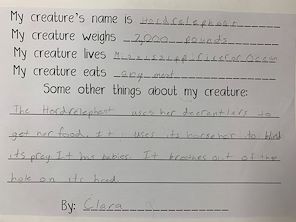 My creature's name is Hordrelephost
My creature weighs 2,000 pounds
My creature lives Mississippi River or Ocean
My creature eats any meat
Some other things about my creature:
The Hordrelephost uses her deerantlers to
get her food. It uses its horsehair to blind
its prey It has babies. It breathes out of the
hole on its head
By: Clara